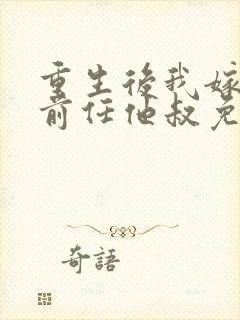 重生後我嫁
前任他叔免
奇語